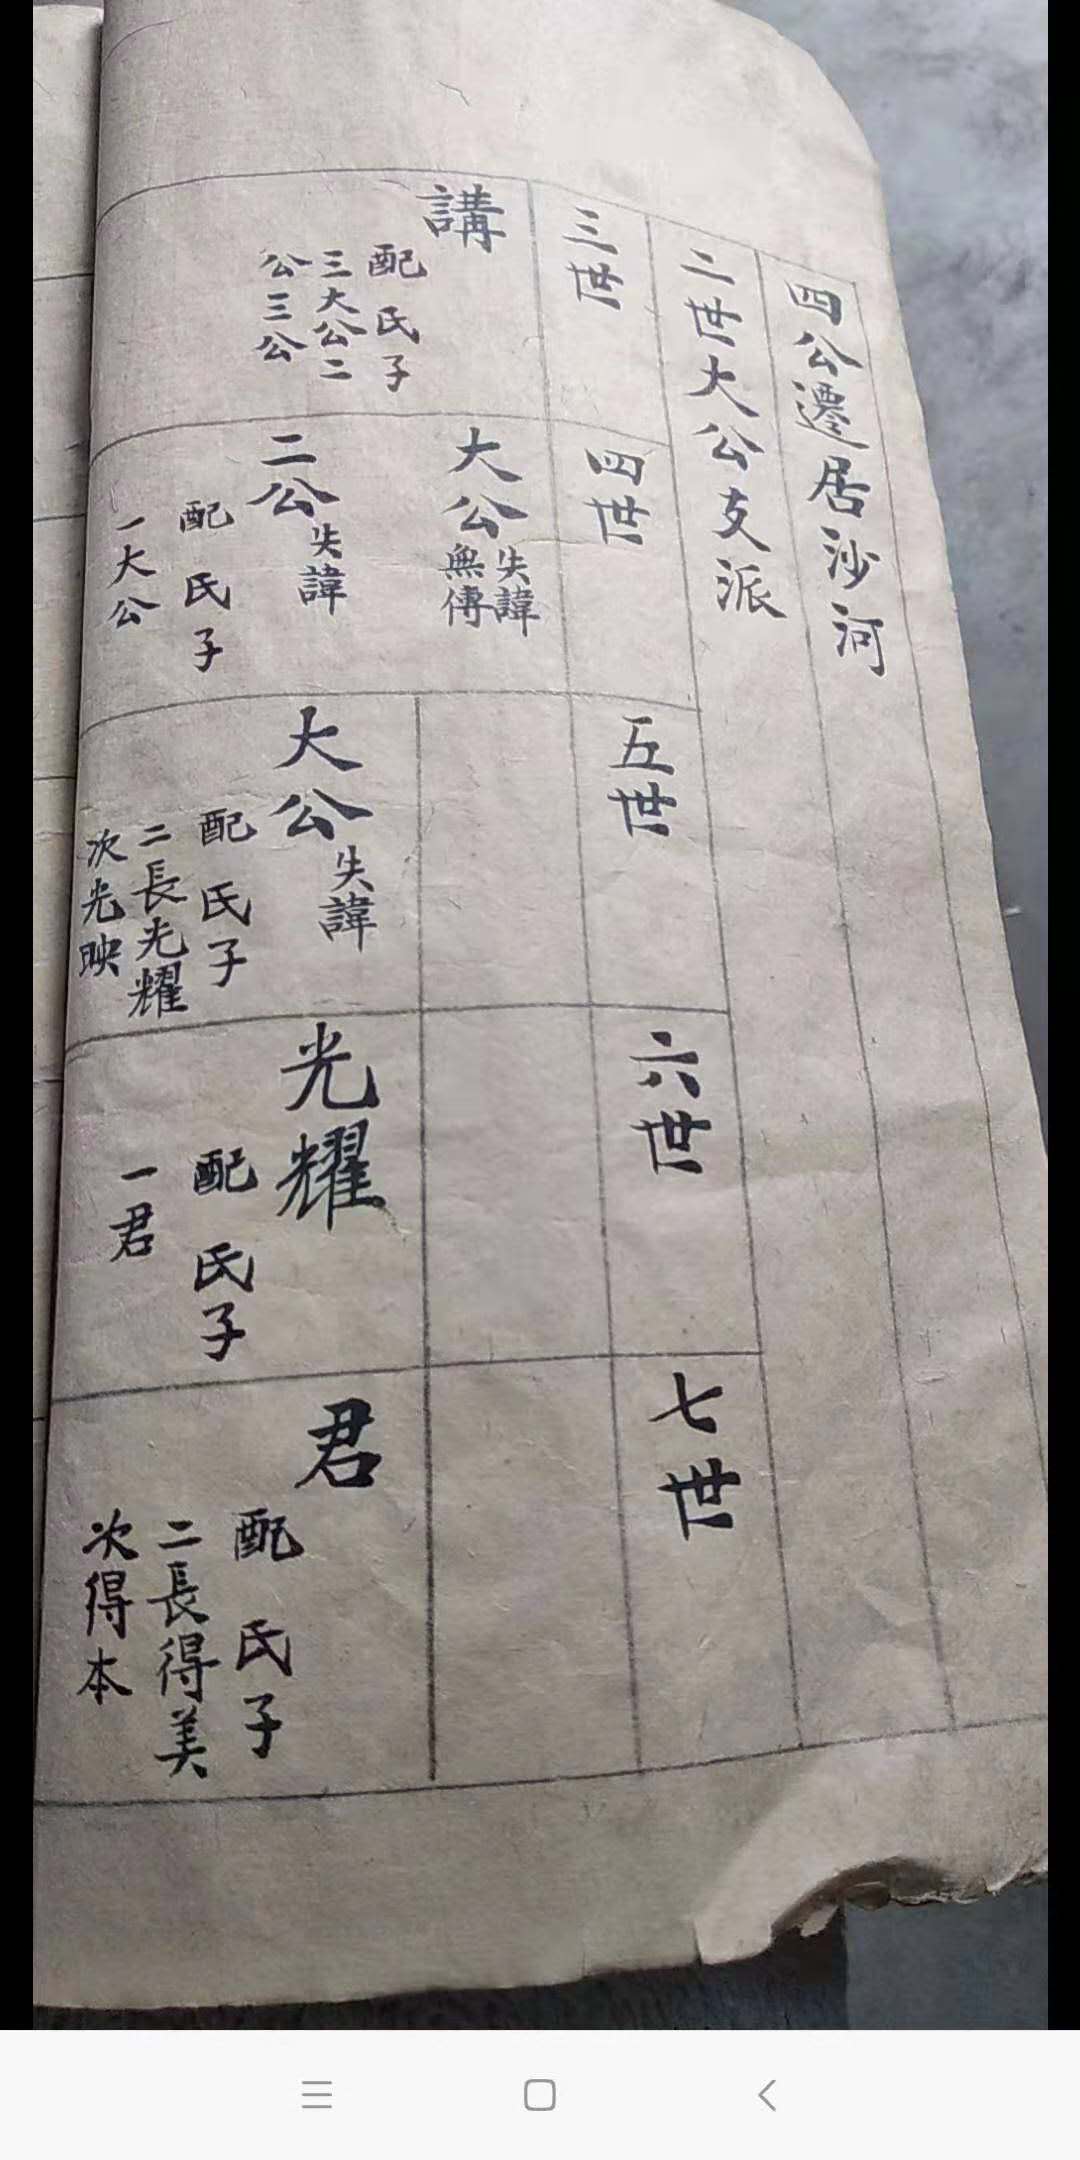 四公遷居沙河
二世大公支派
三世
講
配 氏子
三大公二
公三公
四世
大公
失諱
無傳
二公
失諱
配 氏子
一大公
五世
大公
失諱
配 氏子
二長光耀
次光映
六世
光耀
配 氏子
一君
七世
君
配 氏子
二長得美
次得本